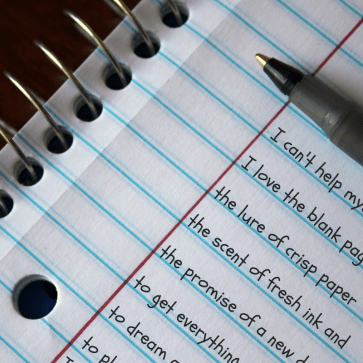 I can't help my
I love the blank pag
the lure of crisp paper
the scent of fresh ink and
the promise of a new d
to get everything
to dream
to pl